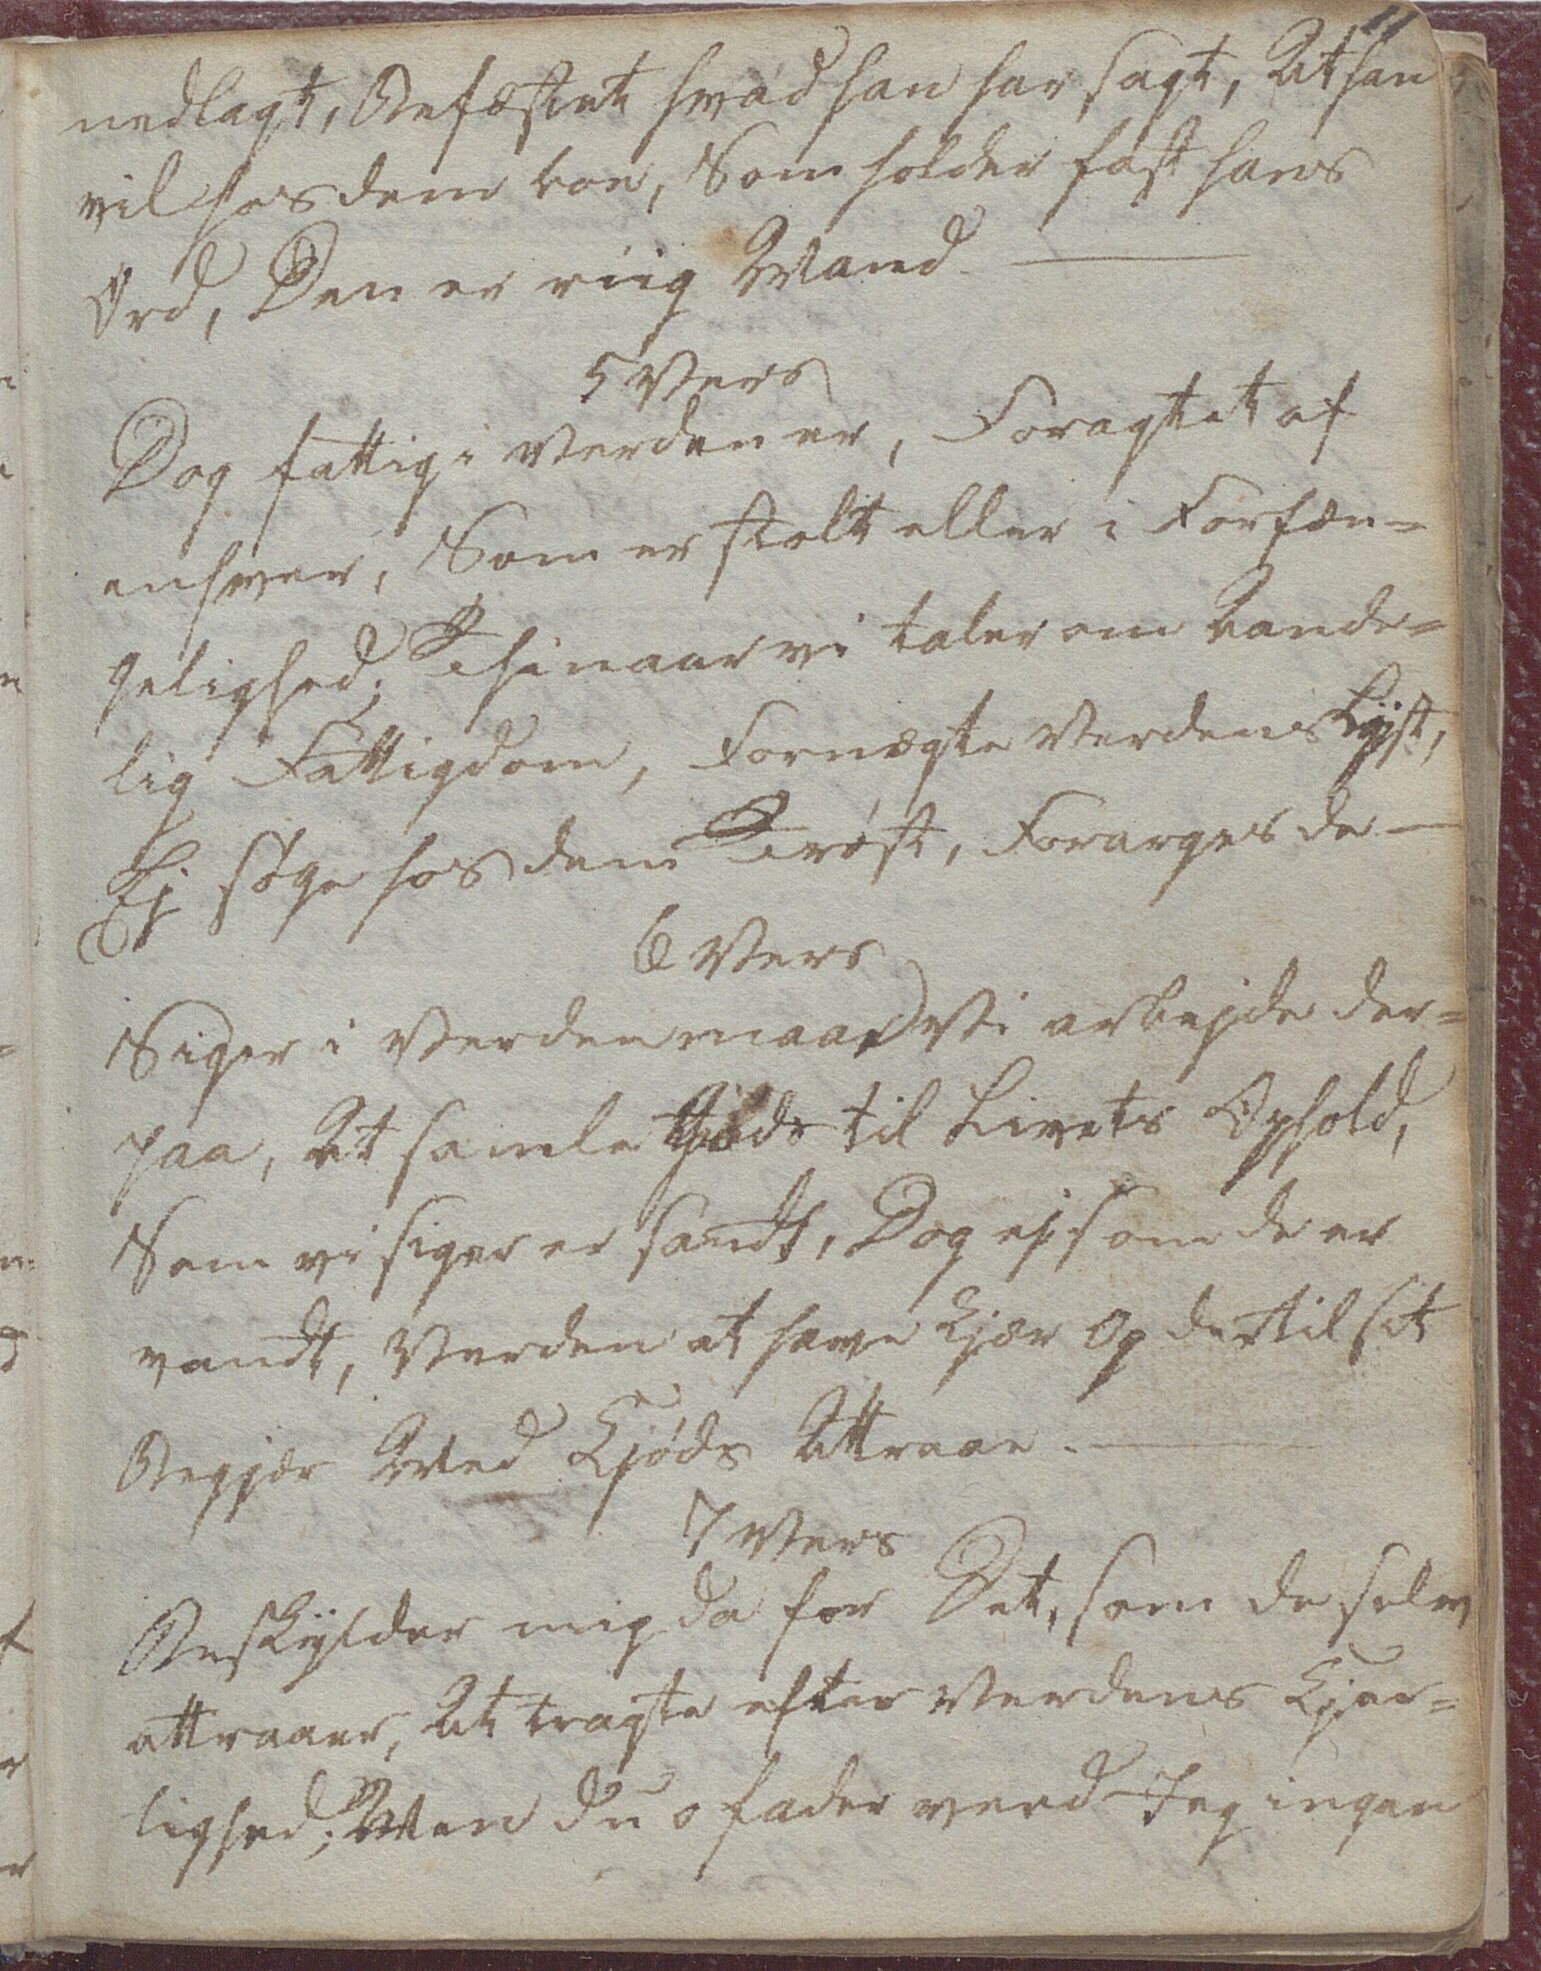 11
nedlagt, Befæstet hvad han har sagt, At han
vil hos dem boe, Som holder fast hans
Ord, Den er riig Mand
5 Vers
Dog fattig i Verden er, Foragtet af
enhver, Som er stolt eller i Forfæn-
gelighed; Thi naar vi taler om Aande-
lig Fattigdom, Fornægte Verdens Lÿst,
Ej søge hos dem Trøst, Forarges de
6 Vers
Siger i Verden maae Vi arbejde der-
paa, At samle Gods til Livets Ophold,
Som vi siger er sandt, Dog ej som de er
vandt, Verden at have kjær Og der til sit
Begjær Med Kjøds Attraae.
7 Vers
Beskÿlder mig da for Det, som de selv
attraaer, At tragte efter Verdens Kjær-
lighed; Men du o fader veed Jeg ingen